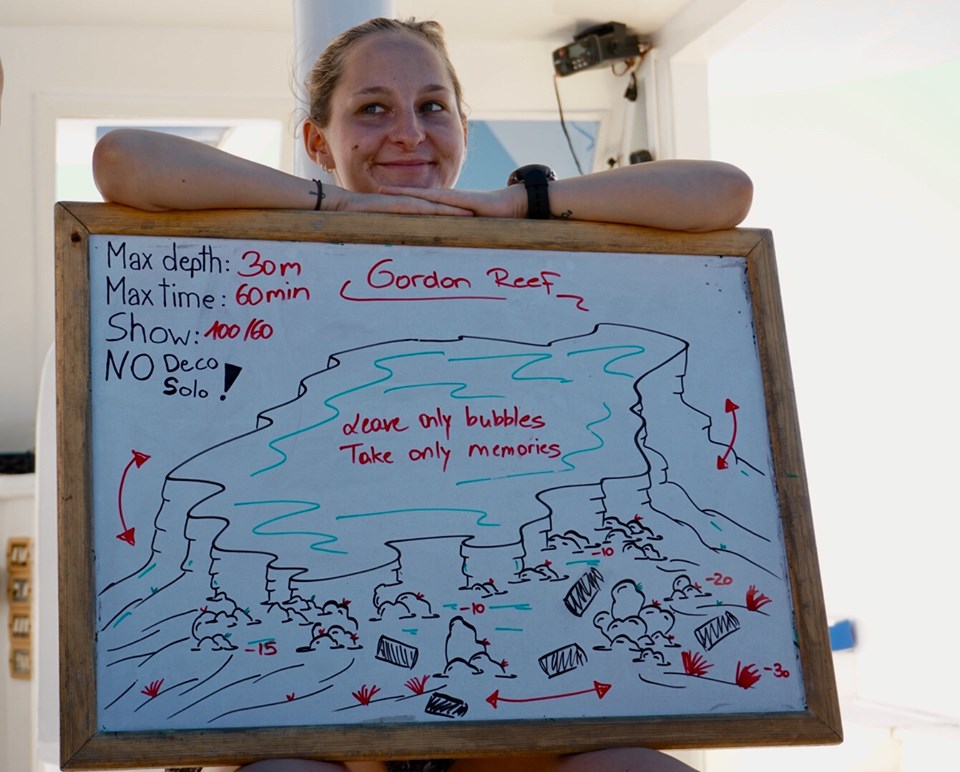 Max depth: 30m
Max time: 60min
Show: 100/60
NO Deco
Solo!
Gordon Reef
Leave only bubbles
Take only memories
-10
-20
-10
-15
-30